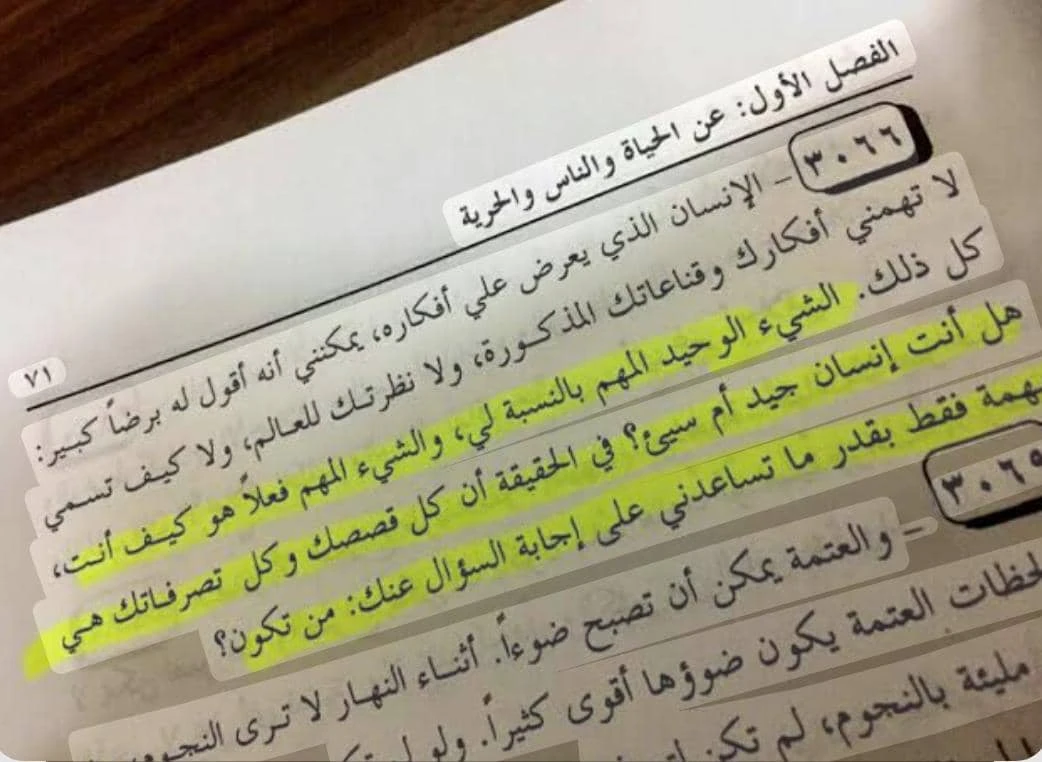 الفصل الأول: عن الحياة والناس والحرية
٧١
٣٠٦٦ – الإنسان الذي يعرض علي أفكاره، يمكنني أنه أقول له برضاً كبير:
لا تهمني أفكارك وقناعاتك المذكورة، ولا نظرتك للعالم، ولا كيف تسمي
كل ذلك. الشيء الوحيد المهم بالنسبة لي، والشيء المهم فعلاً هو كيف أنت،
هل أنت إنسان جيد أم سيئ؟ في الحقيقة أن كل قصصك وكل تصرفاتك هي
مهمة فقط بقدر ما تساعدني على إجابة السؤال عنك: من تكون؟
– والعتمة يمكن أن تصبح ضوءاً. أثناء النهار لا ترى النجوم
لحظات العتمة يكون ضوؤها أقوى كثيراً. ولو لم
مليئة بالنجوم، لم تكن